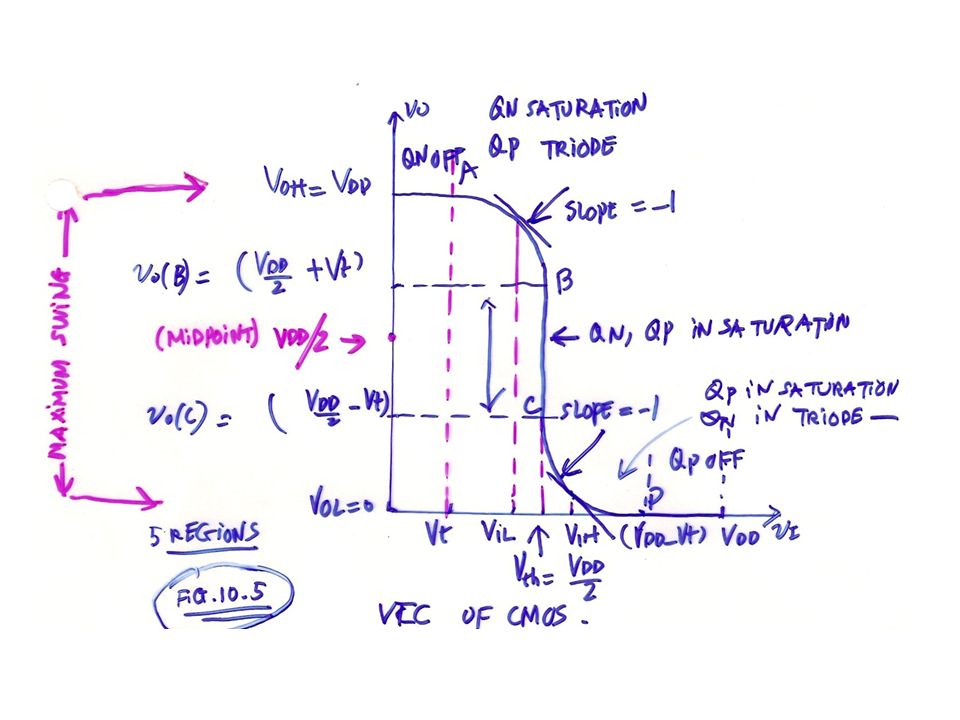 vo
QN SATURATION
QN OFF
A
QP TRIODE
VOH = VDD
SLOPE = -1
vo(B) = (VDD/2 + Vt)
B
MAXIMUM SWING
(MIDPOINT) VDD/2 →
← QN, QP IN SATURATION
vo(C) = (VDD/2 - Vt)
C
SLOPE = -1
QP IN SATURATION
QN IN TRIODE —
QP OFF
D
VOL = 0
Vt
VIL
VIH
(VDD-Vt)
VDD
VI
Vth = VDD/2
5 REGIONS
FIG. 10.5
VTC OF CMOS.